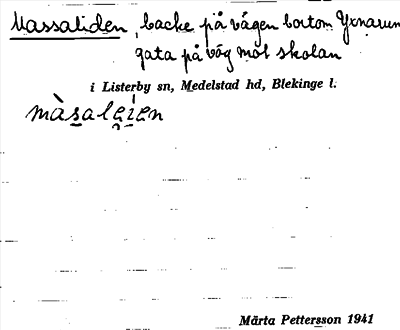 Massaliden, backe på vägen bortom Yxnarum
gata på väg mot skolan
i Listerby sn, Medelstad hd, Blekinge l.
màsaleien
Märta Pettersson 1941